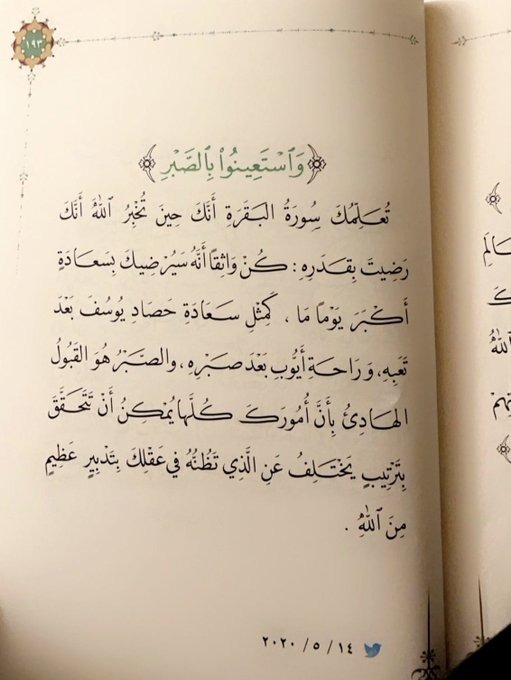 ١٩٣
﴿وَٱسْتَعِينُوا۟ بِٱلصَّبْرِ﴾
تُعَلِّمُكَ سُورَةُ البَقَرَةِ أَنَّكَ حِينَ تُخْبِرُ ٱللَّهَ أَنَّكَ
رَضِيتَ بِقَدَرِهِ : كُنْ وَاثِقاً أَنَّهُ سَيُرْضِيكَ بِسَعَادَةٍ
أَكْبَرَ يَوْماً مَا ، كَمِثْلِ سَعَادَةِ حَصَادِ يُوسُفَ بَعْدَ
تَعَبِهِ، وَرَاحَةِ أَيُّوبَ بَعْدَ صَبْرِهِ ، والصَّبْرُ هُوَ القَبُولُ
الهَادِئُ بِأَنَّ أُمُورَكَ كُلَّهَا يُمْكِنُ أَنْ تَتَحَقَّقَ
بِتَرْتِيبٍ يَخْتَلِفُ عَنِ الَّذِي تَظُنُّهُ فِي عَقْلِكَ بِتَدْبِيرٍ عَظِيمٍ
مِنَ ٱللَّهِ .
٢٠٢٠ / ٥ / ١٤